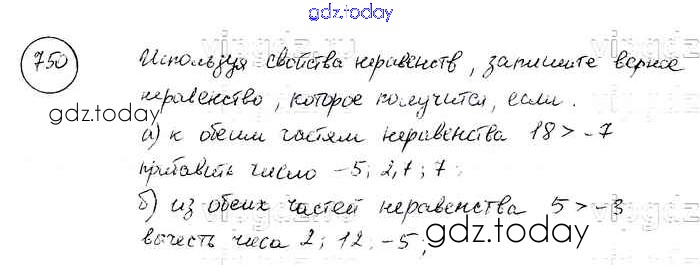 gdz.today
750 Используя свойства неравенств, запишите верное
неравенство, которое получится, если.
gdz.today
а) к обеим частям неравенства 18 > -7
прибавить число -5; 2,7; 7;
б) из обеих частей неравенства 5 > -3
gdz.today
вычесть числа 2; 12; -5;